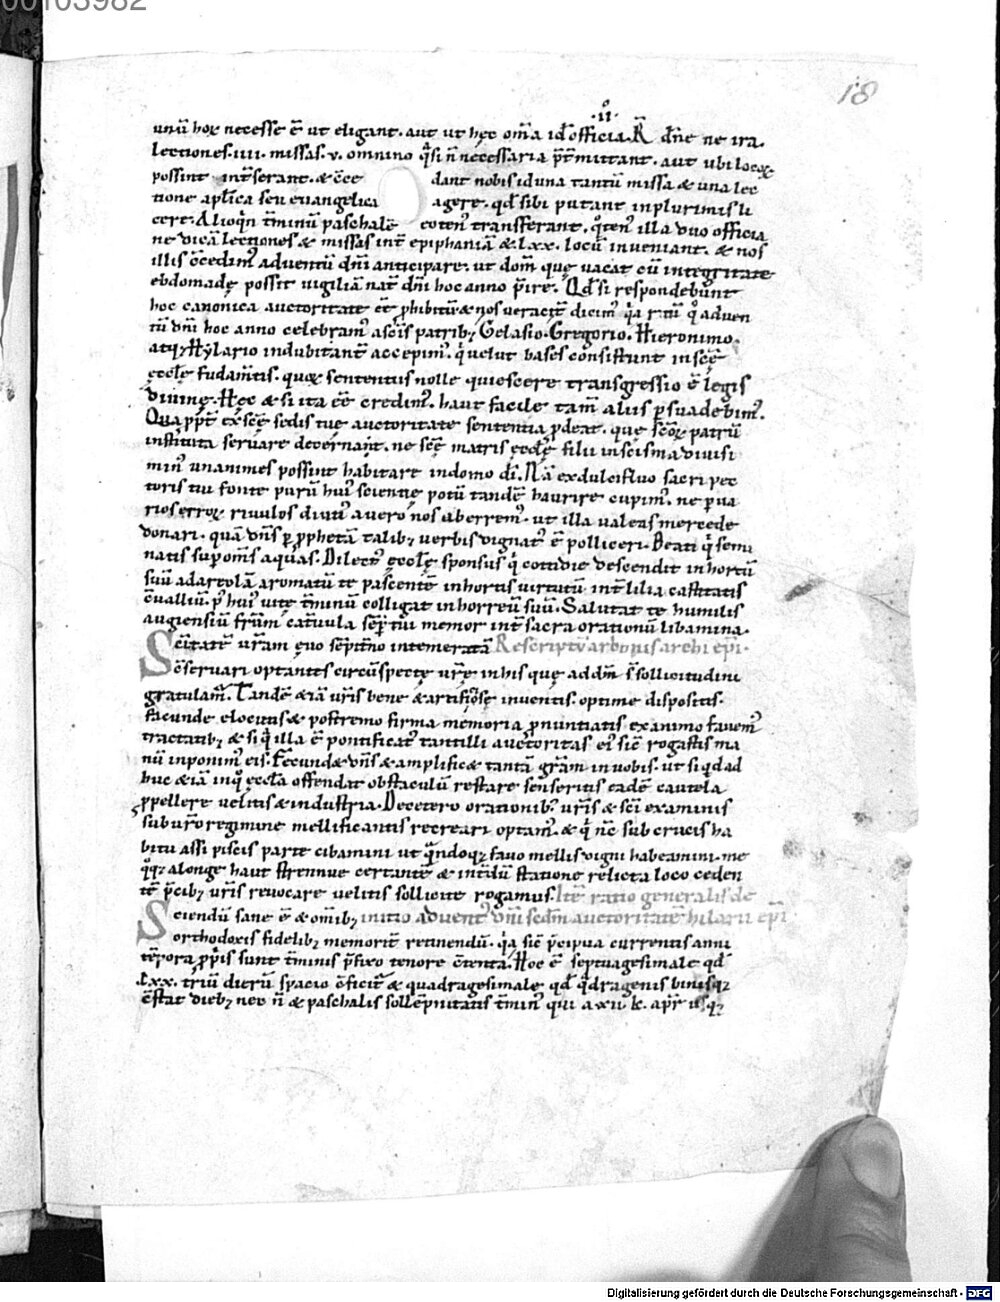 00103982
18
·II·
unū hoꝝ necesse ē ut eligant. aut ut hęc om̄a id ÷ officia. R̄ dn̄e ne ira.
lectiones. IIII. missas. v. omnino q̄si n̄ necessaria p̄t̄mittant. aut ubi locoꝝ
possint int̄serant. & c̄ce dant nobis id una tantū missa & una lec
tione apl̄ica seu evangelica agere. qd̄ sibi putant in plurimis li
cere. Alioqn̄ t̄minū paschalē coten; transferant. illa duo officia
ne dicā lectiones & missas int̄ epiphaniā & lxx. locū inveniant. & nos
illis c̄cedim; adventū dn̄i anticipare. ut dom̄ quę vacat cū integritate
ebdomadę possit vigiliā nat̄ dn̄i hoc anno p̄ire. Qd̄ si respondebunt
hoc canonica auctoritate c̄c̄ ꝓhibitū & nos veracit̄ dicim; q̄a ratū adven
tū dn̄i hoc anno celebram; a sc̄is patrib; Gelasio. Gregorio. Hieronimo.
atq; Hylario indubitant̄ accepim; q̄ velut bases consistunt in sc̄ę
ęccl̄ę fudam̄tis. quoꝝ sententiis nolle quiescere transgressio ē legis
divinę. Hęc & si ita ēē credim; haut facile tam̄ aliis ꝑsuadebim;.
Qua ꝓpt̄ ex sc̄ę sedis tuę auctoritate sententia ꝓdeat. quę sc̄oꝝ patrū
instituta servare decernant. ne sc̄ę matris ęccl̄ę filii in scisma divisi
min; unanimes possint habitare in domo dī. Nā ex dulcifluo sacri pec
toris tui fonte purū hui; scientię potū tandē haurire cupim; ne ꝑ va
rios erroꝝ rivulos diuti; a vero nos aberrem; ut illa valeas mercede
donari. quā dn̄s ꝑ ꝓphetā talib; verbis dignat; ē polliceri. Beati q̄ semi
natis suꝑ om̄s aquas. Dilect; ęccl̄ę sponsus q̄ cotidie descendit in hortū
suū ad areolā aromatū te pascentē in hortis virtutū int̄ lilia castitatis
c̄valliū. p; hui; vitę t̄minū colligat in horreū suū. Salutat te humilis
augiensiū fr̄m cat̄vula sēp t̄ui memor int̄ sacra orationū libamina.
Sc̄itatē vr̄am ęvo sēpit̄no intemeratā Rescriptū arbonis archi ep̄i.
c̄servari optantes circūspectę vr̄ę in his quę ad dm̄ s̄ sollicitudini
gratulam;. Tandē & iā vr̄is bene & artificiose inventis. optime dispositis.
facunde elocutis & postremo firma memoria ꝓnuntiatis ex animo favem;
tractatib; & si q̄ illa ē pontificat; tantilli auctoritas ei; sic rogastis ma
nū inponim; eis. Fecundet dn̄s & amplificet tantā gr̄am in vobis. ut si qd̄ ad
huc & iā inq̄ ęccl̄a offendat obstaculū restare senseritis eadē cautela
ꝓpellere velitis & industria. De cetero orationib; vr̄is & sc̄i examinis
sub vr̄o regimine mellificantis recreari optam; & q̄ nc̄ sub crucis ha
bitu assi piscis parte cibamini ut q̄ndoq; favo mellis digni habeamini. me
q̄q; a longe haut strennue certantē & int̄dū statione relicta loco ceden
tē p̄cib; vr̄is revocare velitis sollicite rogamus. Itē ratio generalis de
Sciendū sane ē & om̄ib; initio advent; dn̄i scdm̄ auctoritatē hilarii ep̄i
orthodoxis fidelib; memorit̄ retinendū. q̄a sic p̄cipua currentis anni
tēpora ꝓp̄is sunt t̄minis p̄fixo tenore c̄tenta. Hoc ē septuagesimale qd̄
lxx. triū dierū spacio c̄ficit̄ & quadragesimale qd̄ q̄dragenis binisq;
c̄stat dieb; nec n̄ & paschalis sollēpnitatis t̄min; qui a xii. k. apr̄ usq;
Digitalisierung gefördert durch die Deutsche Forschungsgemeinschaft - DFG